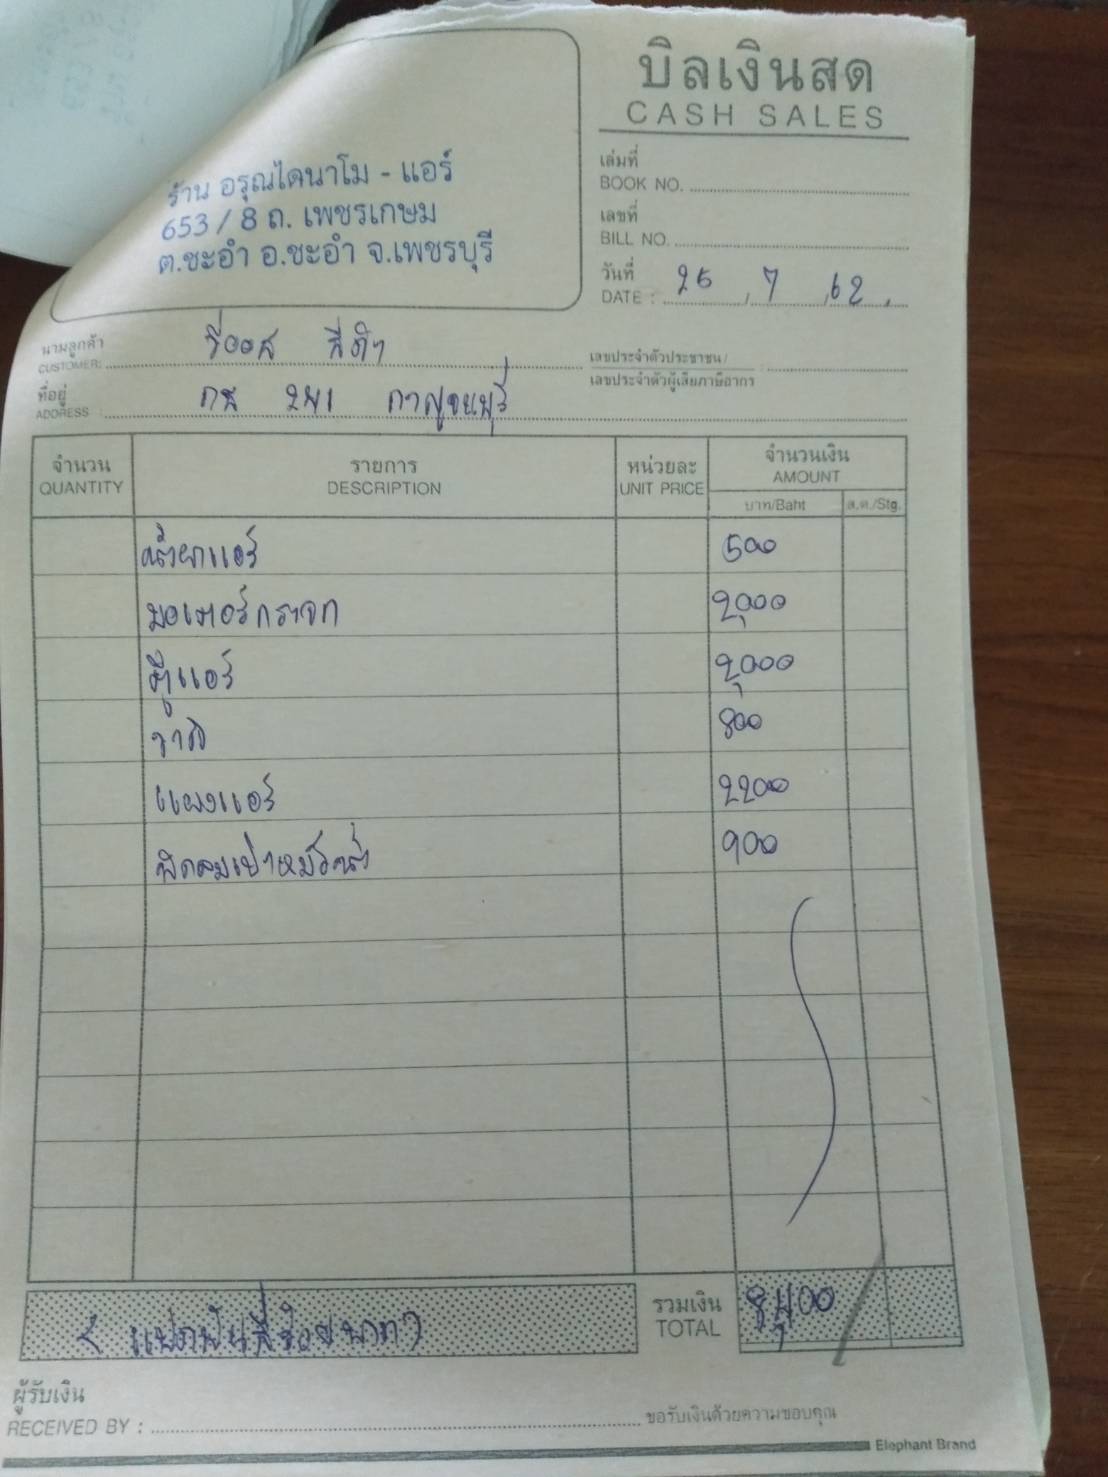 บิลเงินสด
CASH SALES
ร้าน อรุณไดนาโม - แอร์
653 / 8 ถ. เพชรเกษม
ต.ชะอำ อ.ชะอำ จ.เพชรบุรี
เล่มที่
BOOK NO.
เลขที่
BILL NO.
วันที่
DATE : 25 / 7 / 62
นามลูกค้า
CUSTOMER:
เลขประจำตัวประชาชน/
เลขประจำตัวผู้เสียภาษีอากร :
ที่อยู่ กาญจนบุรี
ADDRESS :
จำนวน รายการ หน่วยละ จำนวนเงิน
QUANTITY DESCRIPTION UNIT PRICE AMOUNT
บาท/Baht ส.ต./Stg.
น้ำยาแอร์ 500
มอเตอร์กระจก 2,000
ตู้แอร์ 2,000
800
แผงแอร์ 2200
พัดลมเป่าหม้อน้ำ 900
แปดพันสี่ร้อยบาท
รวมเงิน 8,400
TOTAL
ผู้รับเงิน
RECEIVED BY : ขอรับเงินด้วยความขอบคุณ
Elephant Brand